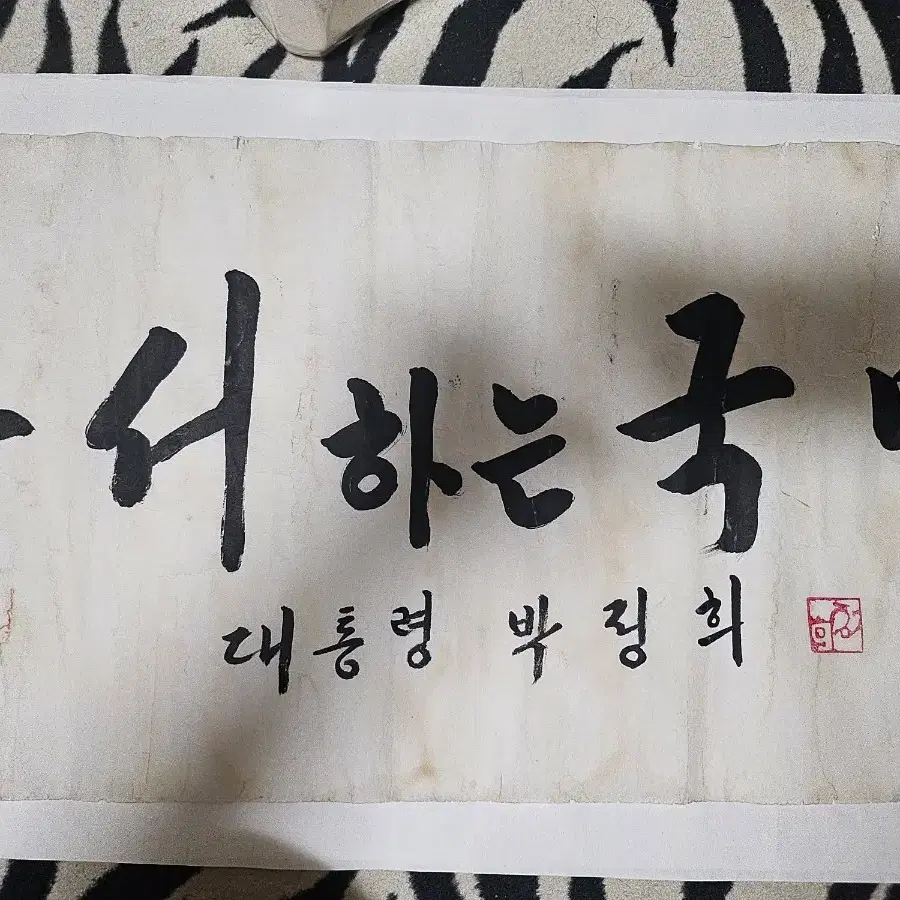 서하는 국
대통령 박정희